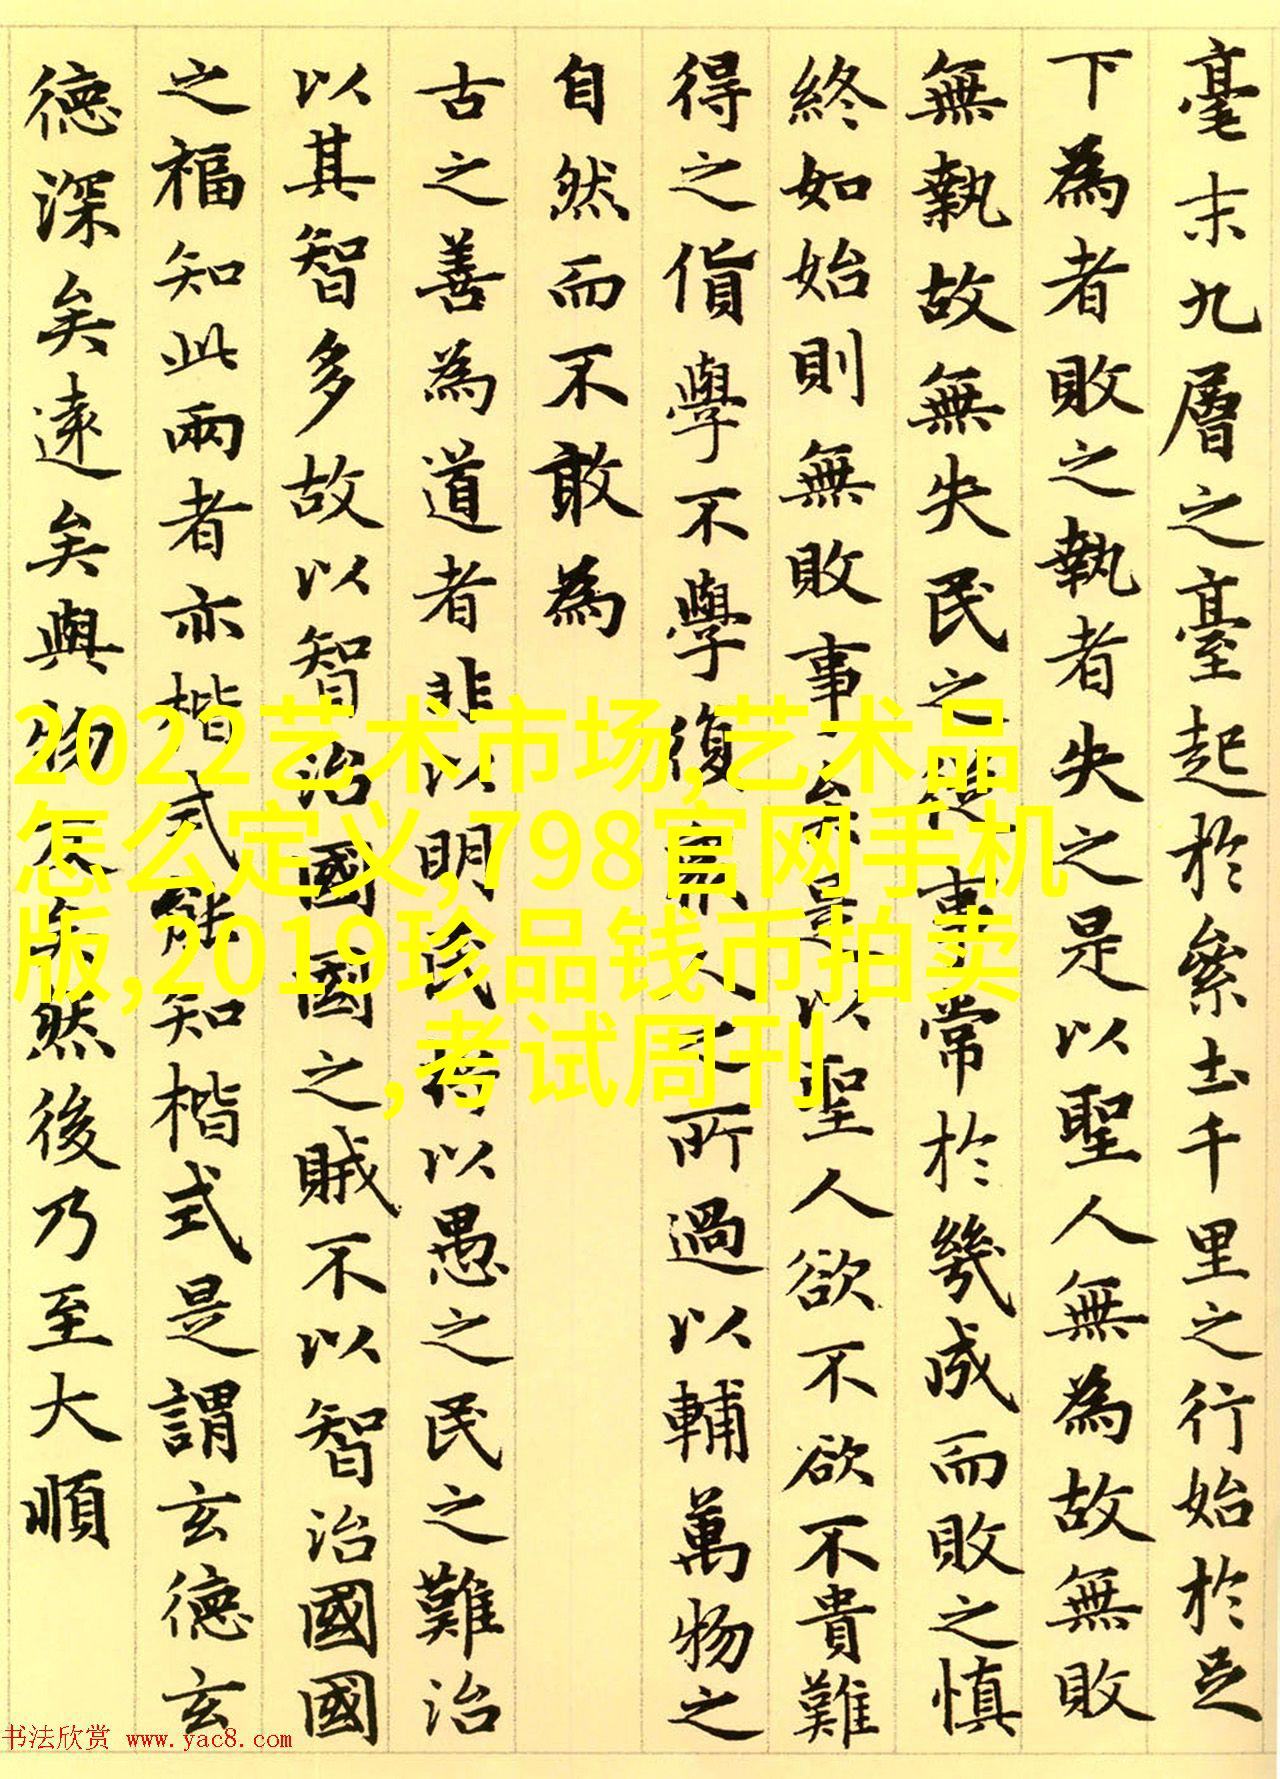 毫末九層之臺起於絫土千里之行始於足
下為者敗之執者失之是以聖人無為故無敗
無執故無失民之從事常於幾成而敗之慎
終如始則無敗事矣是以聖人欲不欲不貴難
得之貨學不學復眾人之所過以輔萬物之
自然而不敢為
古之善為道者非以明民將以愚之民之難治
以其智多故以智治國國之賊不以智治國國
之福知此兩者亦楷式能知楷式是謂玄德玄
德深矣遠矣與物反矣然後乃至大順
2022艺术市场,艺术品
怎么定义,798官网手机
版,2019珍品钱币拍卖
,考试周刊
书法欣赏 www.yac8.com